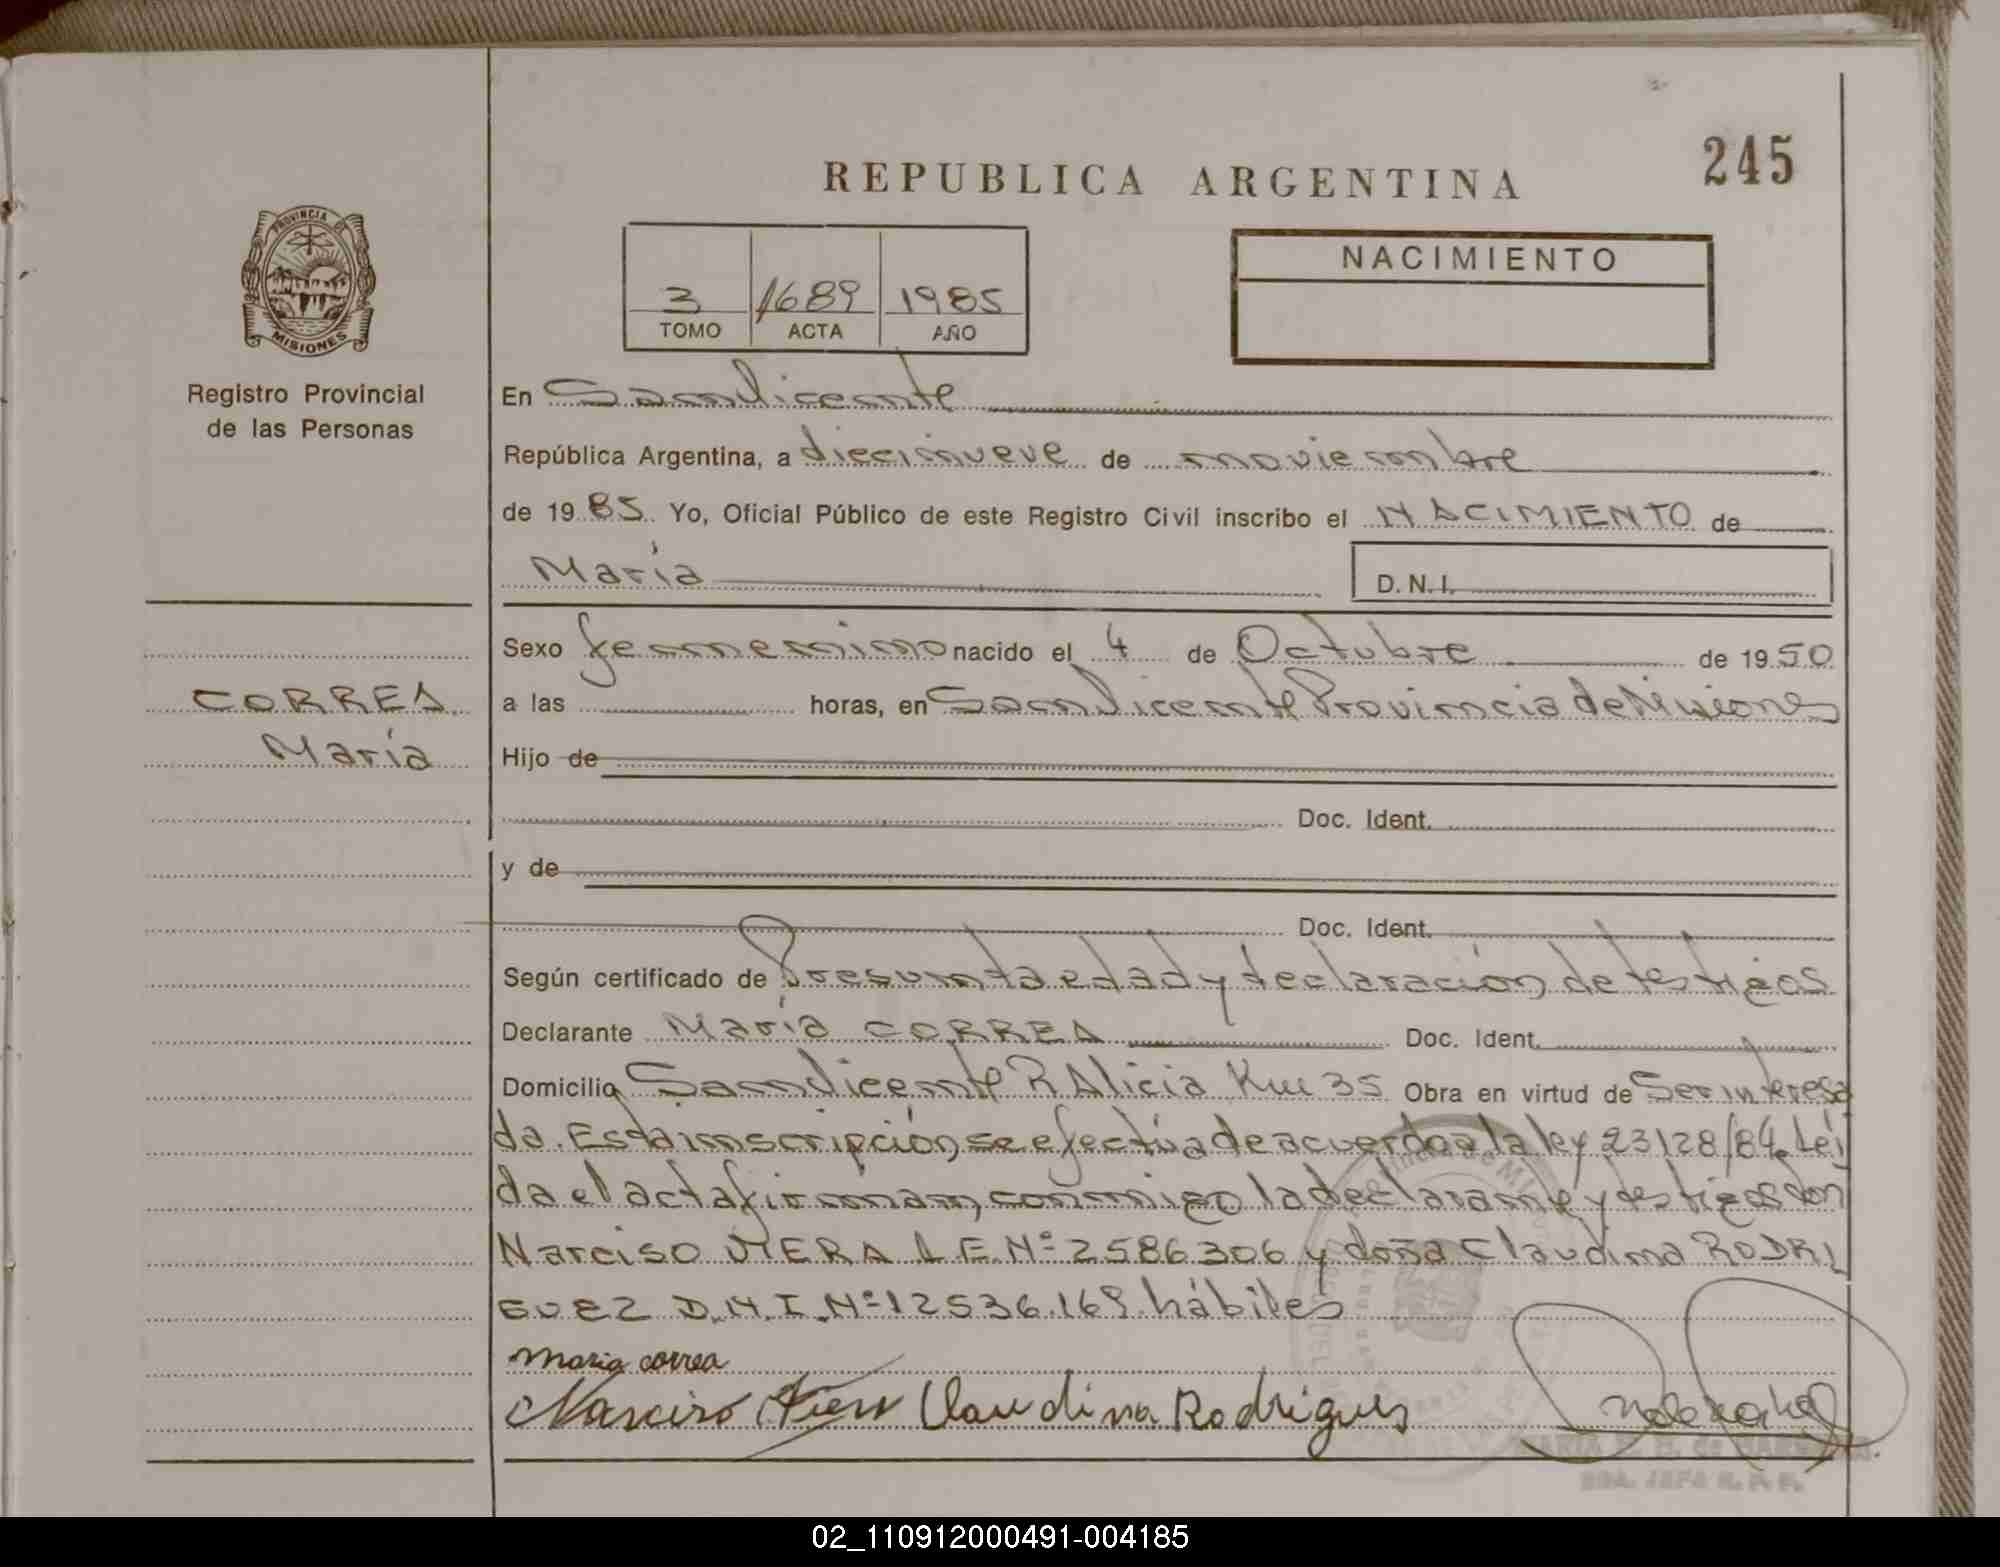 245
REPUBLICA ARGENTINA
PROVINCIA DE
MISIONES
NACIMIENTO
3 1689 1985
TOMO ACTA AÑO
Registro Provincial
de las Personas
En San Vicente
República Argentina, a diecinueve de noviembre
de 1985 Yo, Oficial Público de este Registro Civil inscribo el NACIMIENTO de
María D.N.I.
Sexo femenino nacido el 4 de Octubre de 1950
CORREA
María
a las horas, en San Vicente Provincia de Misiones
Hijo de
Doc. Ident.
y de
Doc. Ident.
Según certificado de Presunta edad y declaración de testigos
Declarante María CORREA Doc. Ident.
Domicilio San Vicente R Alicia Km 35 Obra en virtud de Ser interesa
da. Esta inscripción se efectúa de acuerdo a la ley 23128/84. Leí
da el acta firman conmigo la declarante y testigos don
Narciso VIERA L.E. Nº 2586306 y doña Claudina RODRI
GUEZ D.N.I. Nº 12536.169 hábiles
Maria correa
Narciso Viera Claudina Rodrigues
02_110912000491-004185